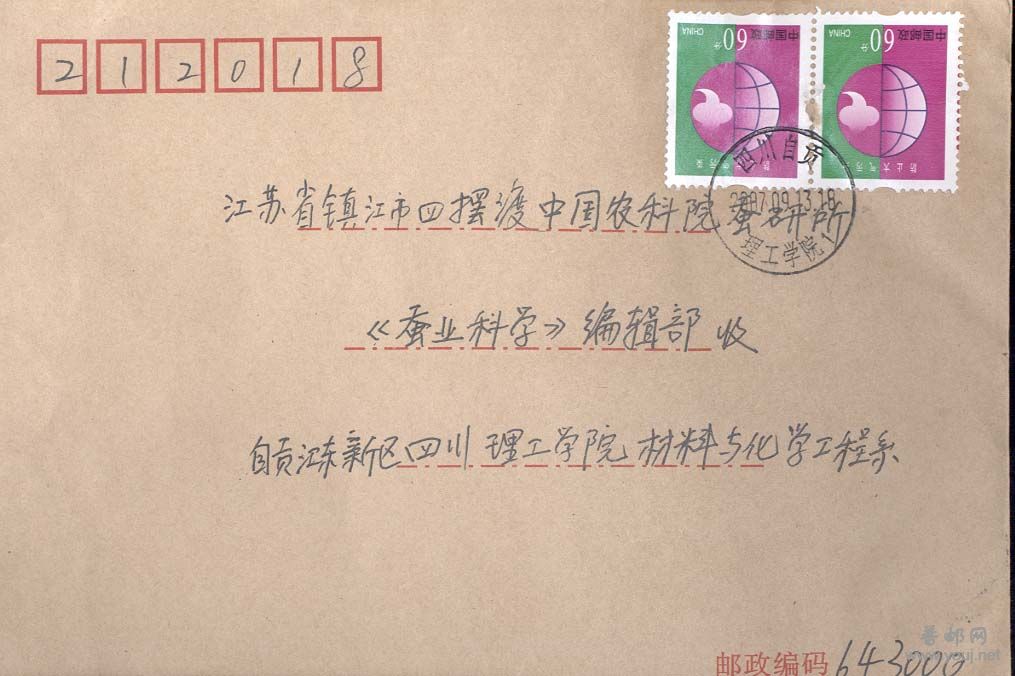 212018
60分 CHINA 中国邮政
60分 CHINA 中国邮政
防止大气污
四川自贡
2007.09.13.18
理工学院1
江苏省镇江市四摆渡中国农科院蚕研所
《蚕业科学》编辑部收
自贡江东新区四川理工学院材料与化学工程系
邮政编码643000
普邮网
www.youj.net